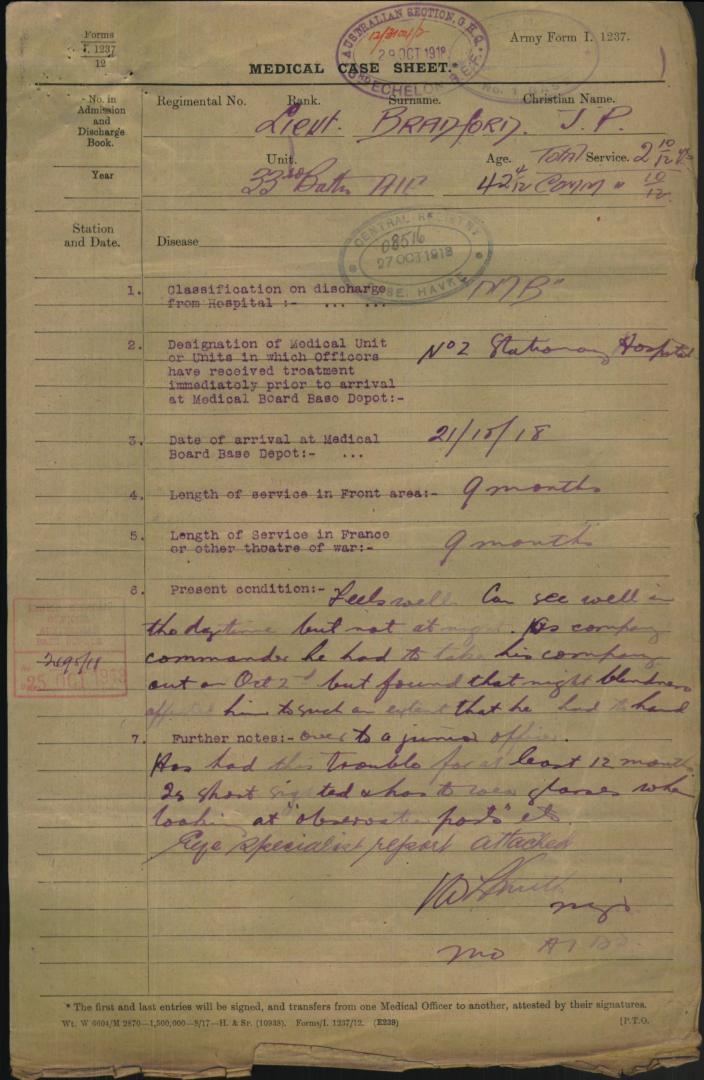 Forms
I. 1237
12
Army Form I. 1237.
AUSTRALIAN SECTION, G.H.Q.
29 OCT 1918
ECHELON B.E.F.
MEDICAL CASE SHEET.*
No. in
Admission
and
Discharge
Book.
Regimental No. Rank. Surname. Christian Name.
Lieut. BRADFORD. J. P.
Year
Unit. Age. Total Service. 2 10/12 yrs
33rd Battn AIF 42 4/12 Comm " 10/12
Station
and Date.
Disease
CENTRAL REGISTRY
08516
27 OCT 1918
BASE. HAVRE
1. Classification on discharge
from Hospital :- ... ...
"MB"
2. Designation of Medical Unit
or Units in which Officers
have received treatment
immediately prior to arrival
at Medical Board Base Depot:-
No 2 Stationary Hospital
3. Date of arrival at Medical
Board Base Depot:- ...
21/10/18
4. Length of service in Front area:- 9 months
5. Length of Service in France
or other theatre of war:-
9 months
6. Present condition:- Feels well. Can see well in
the daytime but not at night. As company
commander he had to take his company
out on Oct 2nd but found that night blindness
affected him to such an extent that he had to hand
25 OCT 1918
7. Further notes:- over to a junior officer.
Has had this trouble for at least 12 months
Is short sighted & has to wear glasses when
looking at "observation posts" etc.
Eye specialist report attached
Smith
Major
MO
* The first and last entries will be signed, and transfers from one Medical Officer to another, attested by their signatures.
Wt. W 6604/M 2870—1,500,000—8/17—H. & Sr. (10938). Forms/I. 1237/12. (E239) [P.T.O.